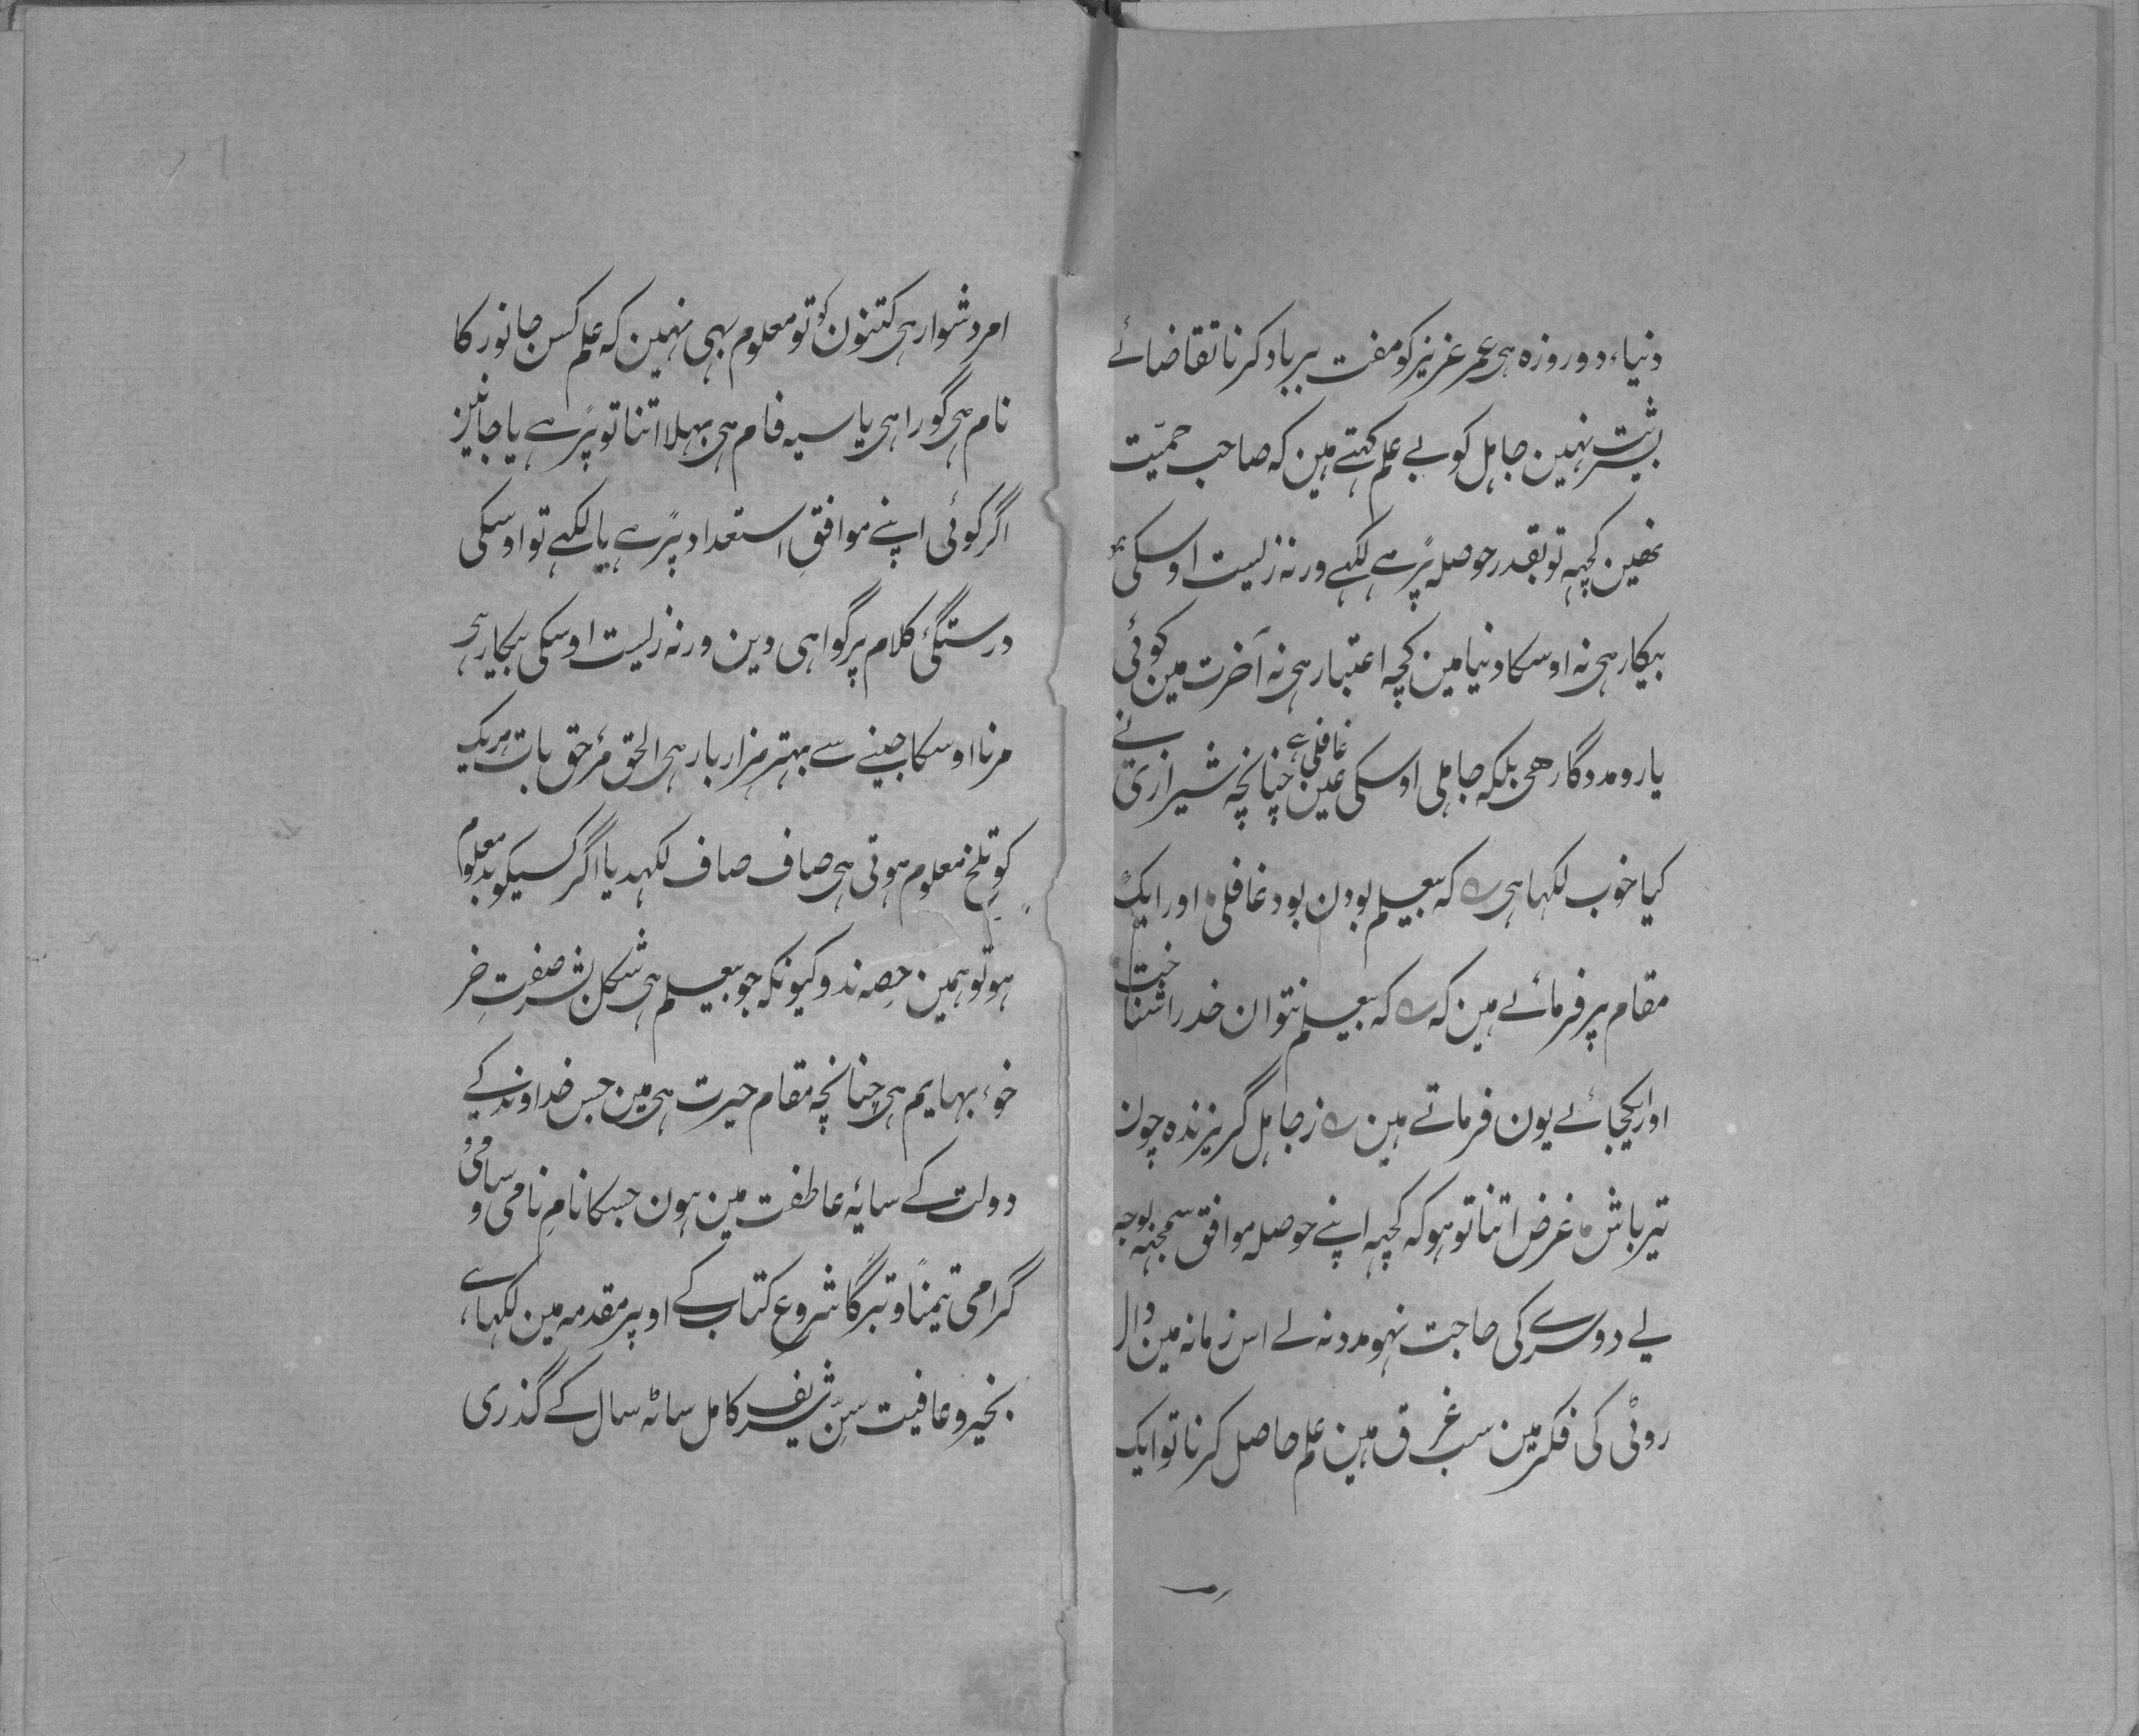 دنیاء دو روزہ ہی عمر عزیز کو مفت برباد کرنا تقاضائے
بشریت نہین جاہل کو بے علم کہتے ہین کہ صاحب حمیّت
نہین کچہہ تو بقدر حوصلہ پڑہے لکہے ورنہ زلیست اوسکی
بیکار ہی نہ اوسکا دنیا مین کچہ اعتبار ہی نہ آخرت مین کوئی
یار و مددگار ھی بلکہ جاہلی اوسکی عین غافلی ہے چنانچہ شیرازی نے
کیا خوب لکہا ہی ؎ کہ بیعلم بودن بود غافلی ٭ اور ایک
مقام پر فرمائے ہین کہ ؎ کہ بیعلم نتوان خدا را شناخت
اور ایکجائے یون فرماتے ہین ؎ ز جاہل گریزندہ چون
تیر باش ٭ غرض اتنا تو ہو کہ کچہہ اپنے حوصلہ موافق سمجہنہ بوجہ
لے دوسرے کی حاجت نہو مدد نہ لے اس زمانہ مین دال
روٹی کی فکر مین سب غرق ہین علم حاصل کرنا تو ایک
امر دشوار ہی کتنون کو تو معلوم بہی نہین کہ علم کس جانور کا
نام ہی گورا ہی یا سیہ فام ہی بہلا اتنا تو پڑہے یا جانے
اگر کوئی اپنے موافقِ استعداد پڑہے یا لکہے تو اوسکی
درستگیٔ کلام پر گواہی دین ورنہ زلیست اوسکی بیکار ہی
مرنا اوسکا جینے سے بہتر ہزار بار ہی الحق مرٌ حق بات ہریک
کو تلخ معلوم ہوتی ہی صاف صاف لکہدیا اگر کسیکو بد معلوم
ہو تو ہمین حِصہ ندو کیونکہ جو بیعلم ہی شکل بشر صفتِ خر
خوء بہایم ہی چنانچہ مقام حیرت ہی مین جس خداوند کے
دولت کے سایۂ عاطفت مین ہون جسکا نامِ نامی و سامی و
گرامی تیمنًا و تبرکًا شروع کتاب کے اوپر مقدمہ مین لکہا ہے
بخیر و عافیت سِنّ شریف کامل ساٹہ سال کے گذری